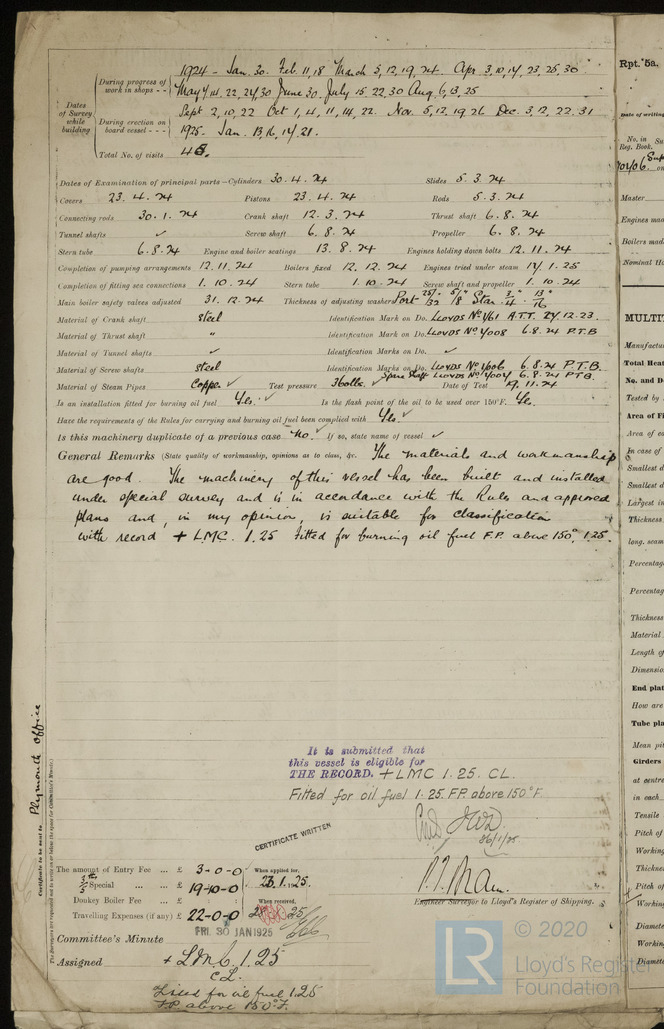 1924 - Jan. 30. Feb. 11, 18 March 5, 12, 19, 24. Apr. 3, 10, 14, 23, 25, 30
During progress of work in shops - - May 7, 14, 22, 24, 30 June 30. July 15, 22, 30 Aug. 6, 13, 25
Dates of Survey while building
During erection on board vessel - - - Sept 2, 10, 22 Oct 1, 4, 11, 14, 22. Nov. 5, 12, 19, 26 Dec. 3, 12, 22, 31
1925. Jan. 13, 16, 17, 21.
Total No. of visits 48.
Dates of Examination of principal parts—Cylinders 30.4.24 Slides 5.3.24
Covers 23.4.24 Pistons 23.4.24 Rods 5.3.24
Connecting rods 30.1.24 Crank shaft 12.3.24 Thrust shaft 6.8.24
Tunnel shafts ✓ Screw shaft 6.8.24 Propeller 6.8.24
Stern tube 6.8.24 Engine and boiler seatings 13.8.24 Engines holding down bolts 12.11.24
Completion of pumping arrangements 12.11.24 Boilers fixed 12.12.24 Engines tried under steam 17.1.25
Completion of fitting sea connections 1.10.24 Stern tube 1.10.24 Screw shaft and propeller 1.10.24
Main boiler safety valves adjusted 31.12.24 Thickness of adjusting washers Port 25/32 5/8 Star 3/4 13/16
Material of Crank shaft steel Identification Mark on Do. LLOYDS No 4/61 A.T.T. 27.12.23.
Material of Thrust shaft " Identification Mark on Do. LLOYDS No 4008 6.8.24 P.T.B
Material of Tunnel shafts ✓ Identification Marks on Do. ✓
Material of Screw shafts steel Identification Marks on Do. LLOYDS No 4006 6.8.24 P.T.B.
Spare Shaft LLOYDS No 4007 6.8.24 P.T.B
Material of Steam Pipes Copper ✓ Test pressure 360 lbs. ✓ Date of Test 19.11.24
Is an installation fitted for burning oil fuel Yes. ✓ Is the flash point of the oil to be used over 150°F. Yes.
Have the requirements of the Rules for carrying and burning oil fuel been complied with Yes. ✓
Is this machinery duplicate of a previous case No. If so, state name of vessel ✓
General Remarks (State quality of workmanship, opinions as to class, &c. The materials and workmanship
are good. The machinery of this vessel has been built and installed
under special survey and is in accordance with the Rules and approved
plans and, in my opinion, is suitable for classification
with record + LMC. 1.25 Fitted for burning oil fuel F.P. above 150° 1.25.
It is submitted that
this vessel is eligible for
THE RECORD. + LMC 1.25. CL.
Fitted for oil fuel 1.25 FP. above 150°F.
26/1/25
CERTIFICATE WRITTEN
Plymouth Office
Certificate to be sent to
The amount of Entry Fee ... £ 3-0-0 When applied for,
4/5 Special ... £ 19-10-0 23.1.1925.
Donkey Boiler Fee ... £ : : When received,
Travelling Expenses (if any) £ 22-0-0
Engineer Surveyor to Lloyd's Register of Shipping.
Committee's Minute FRI. 30 JAN 1925
Assigned + LMC 1.25
CL.
Fitted for oil fuel 1.25
F.P. above 150°F.
© 2020
LR
Lloyd's Register
Foundation
Rpt. 5a.
Date of writing
No. in
Reg. Book.
Master
Engines made
Boilers made
Nominal Ho
MULTI
Manufactur
Total Heat
No. and De
Tested by
Area of Fi
Area of ea
In case of
Smallest d
Smallest d
Largest in
Thickness
long. seam
Percentag
Percentag
Thickness
Material
Length of
Dimensio
End plat
How are
Tube pla
Mean pit
Girders
at centre
in each
Tensile
Pitch of
Working
Thickne
Pitch of
Working
Diamete
Working
Diamete